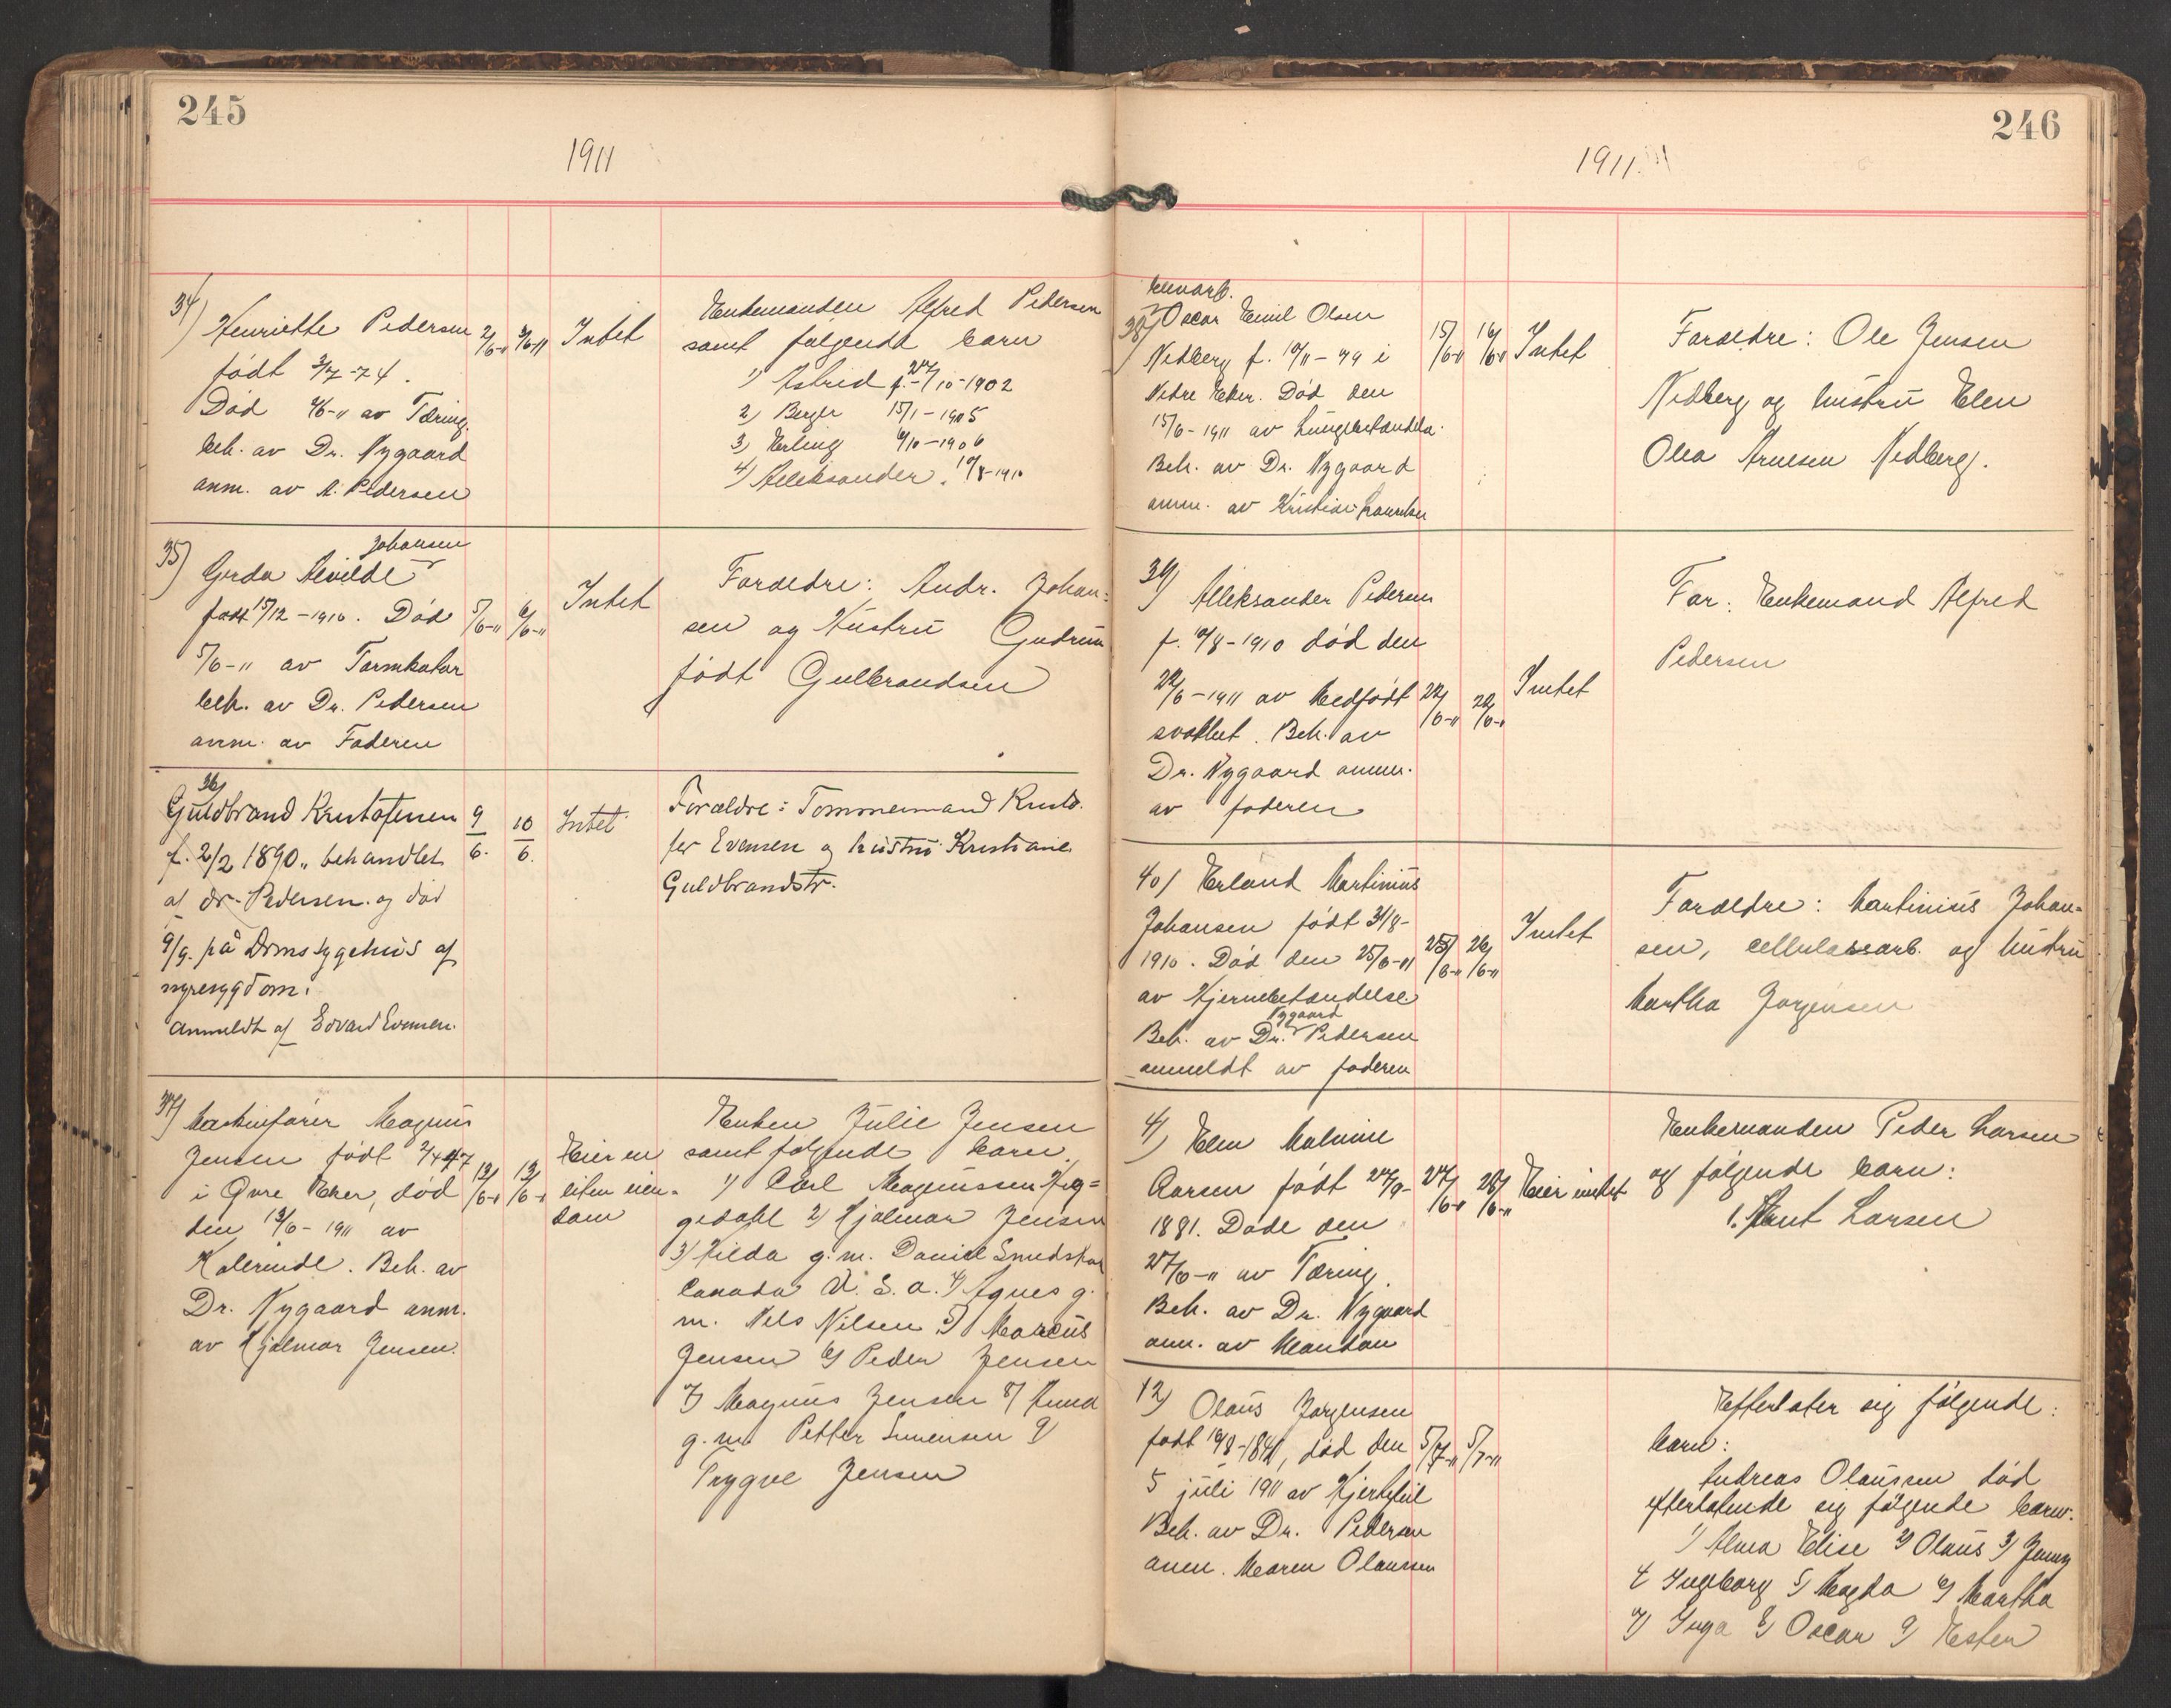 245
1911
34)
Henriette Pedersen 2/6-11 3/6-11 Intet
født 3/7-74.
Død 2/6-11 av Tæring.
beh. av Dr. Nygaard
anm. av A. Pedersen
Enkemanden Alfred Pedersen
samt følgende barn
1) Astrid f. 27/10-1902
2) Bergle 15/1-1905
3) Erling 6/10-1906
4) Alleksander. 10/8-1910
35) Johansen
Gerda Alvilde
født 15/12-1910. Død 5/6-11 6/6-11 Intet
5/6-11 av Tarmkatar
beh. av Dr. Pedersen
anm. av Faderen
Forældre: Andr. Johan=
sen og Hustru Gudrun
født Gulbrandsen
36)
Guldbrand Kristofersen 9/6. 10/6. Intet
f. 2/2 1890., behandlet
af dr. Pedersen. og død
9/9. på Drms sygehus af
nyresygdom.
Anmeldt af Edvard Evensen.
Forældre: Tømmermand Kristo-
fer Evensen og hustru Kristiane
Guldbrandstr.
37) Maskinfører Magnus
Jensen født 2/4 47
i Øvre Eker, død 12/6-11 13/6-11
den 12/6-1911 av
Kolerinde. Beh. av
Dr. Nygaard anm.
av Hjalmar Jensen.
Eier en
liten eien=
dom
Enken Julie Jensen
samt følgende barn.
1) Carl Magnussen Hæg=
gedahl 2) Hjalmar Jensen
3) Hilda g. m. Daniel
Canada U. S. a. 4) Agnes g.
m. Nels Nilsen 5) Marcus
Jensen 6) Peder Jensen
7) Magnus Jensen 8) Anna
g. m. Petter Simensen 9)
Trygve Jensen
246
1911.
38) Oscar Emil Olsen
Nedberg f. 10/11-79 i 15/6-11 16/6-11 Intet
Nedre Eker. Død den
15/6-1911 av Lungebetændelse.
Beh. av Dr. Nygaard
anm. av Kristian
Forældre: Ole Jensen
Nedberg og hustru Elen
Olea Arnesen Nedberg.
39) Alleksander Pedersen
f. 10/8-1910 død den
22/6-1911 av Medfødt 22/6-11 22/6-11 Intet
svakhet. Beh. av
Dr. Nygaard anm.
av faderen
Far: Enkemand Alfred
Pedersen
40) Erland Martinius
Johansen født 31/8-
1910. Død den 25/6-11 25/6-11 26/6-11 Intet
av Hjernebetændelse
Nygaard
Beh. av Dr. Pedersen
anmeldt av faderen
Forældre: Martinius Johan=
sen, cellulosearb. og hustru
Martha Jørgensen
4) Elen Malvine
Larsen født 24/9- 27/6-11 28/6-11 Eier intet
1881. Døde den
27/6-11 av Tæring.
Beh. av Dr. Nygaard
anm. av Mandan
Enkemanden Peder Larsen
og følgende barn:
1. Knut Larsen
12) Olaus Jørgensen
født 10/8-1841, død den 5/7-11 5/7-11
5 juli 1911 av Hjertefeil
Beh. av Dr. Pedersen
anm. Maren Olaussen
Efterlater sig følgende:
barn:
Andreas Olaussen død
efterlatende sig følgende barn.
1) Alma Elise 2) Olaus 3) Jenny
4 Ingeborg 5) Magda 6) Martha
7) Inga 8) Oscar 9) Ester